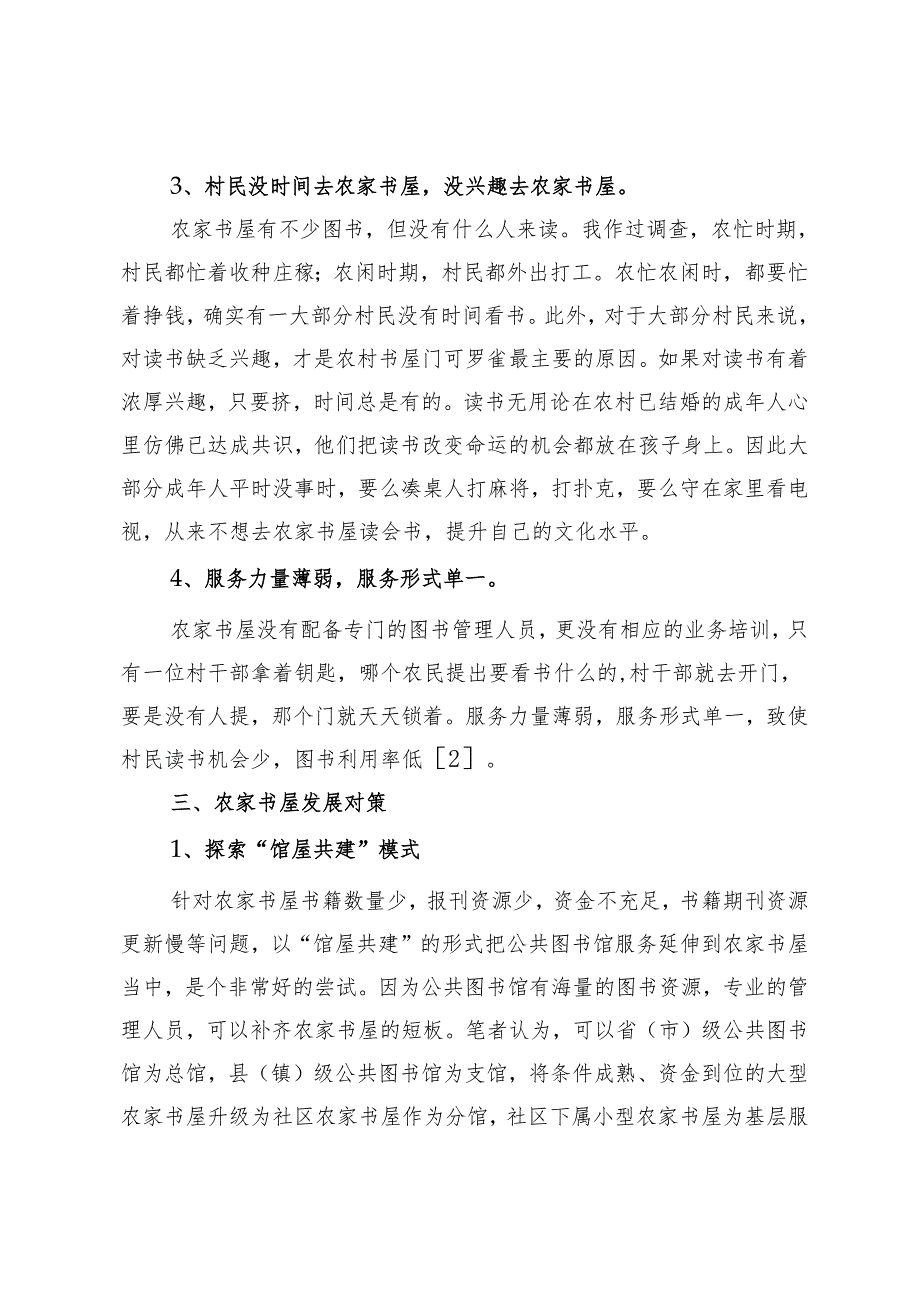 3、村民没时间去农家书屋，没兴趣去农家书屋。
农家书屋有不少图书，但没有什么人来读。我作过调查，农忙时期，
村民都忙着收种庄稼；农闲时期，村民都外出打工。农忙农闲时，都要忙
着挣钱，确实有一大部分村民没有时间看书。此外，对于大部分村民来说，
对读书缺乏兴趣，才是农村书屋门可罗雀最主要的原因。如果对读书有着
浓厚兴趣，只要挤，时间总是有的。读书无用论在农村已结婚的成年人心
里仿佛已达成共识，他们把读书改变命运的机会都放在孩子身上。因此大
部分成年人平时没事时，要么凑桌人打麻将，打扑克，要么守在家里看电
视，从来不想去农家书屋读会书，提升自己的文化水平。
4、服务力量薄弱，服务形式单一。
农家书屋没有配备专门的图书管理人员，更没有相应的业务培训，只
有一位村干部拿着钥匙，哪个农民提出要看书什么的,村干部就去开门，
要是没有人提，那个门就天天锁着。服务力量薄弱，服务形式单一，致使
村民读书机会少，图书利用率低［2］。
三、农家书屋发展对策
1、探索“馆屋共建”模式
针对农家书屋书籍数量少，报刊资源少，资金不充足，书籍期刊资源
更新慢等问题，以“馆屋共建”的形式把公共图书馆服务延伸到农家书屋
当中，是个非常好的尝试。因为公共图书馆有海量的图书资源，专业的管
理人员，可以补齐农家书屋的短板。笔者认为，可以省（市）级公共图书
馆为总馆，县（镇）级公共图书馆为支馆，将条件成熟、资金到位的大型
农家书屋升级为社区农家书屋作为分馆，社区下属小型农家书屋为基层服